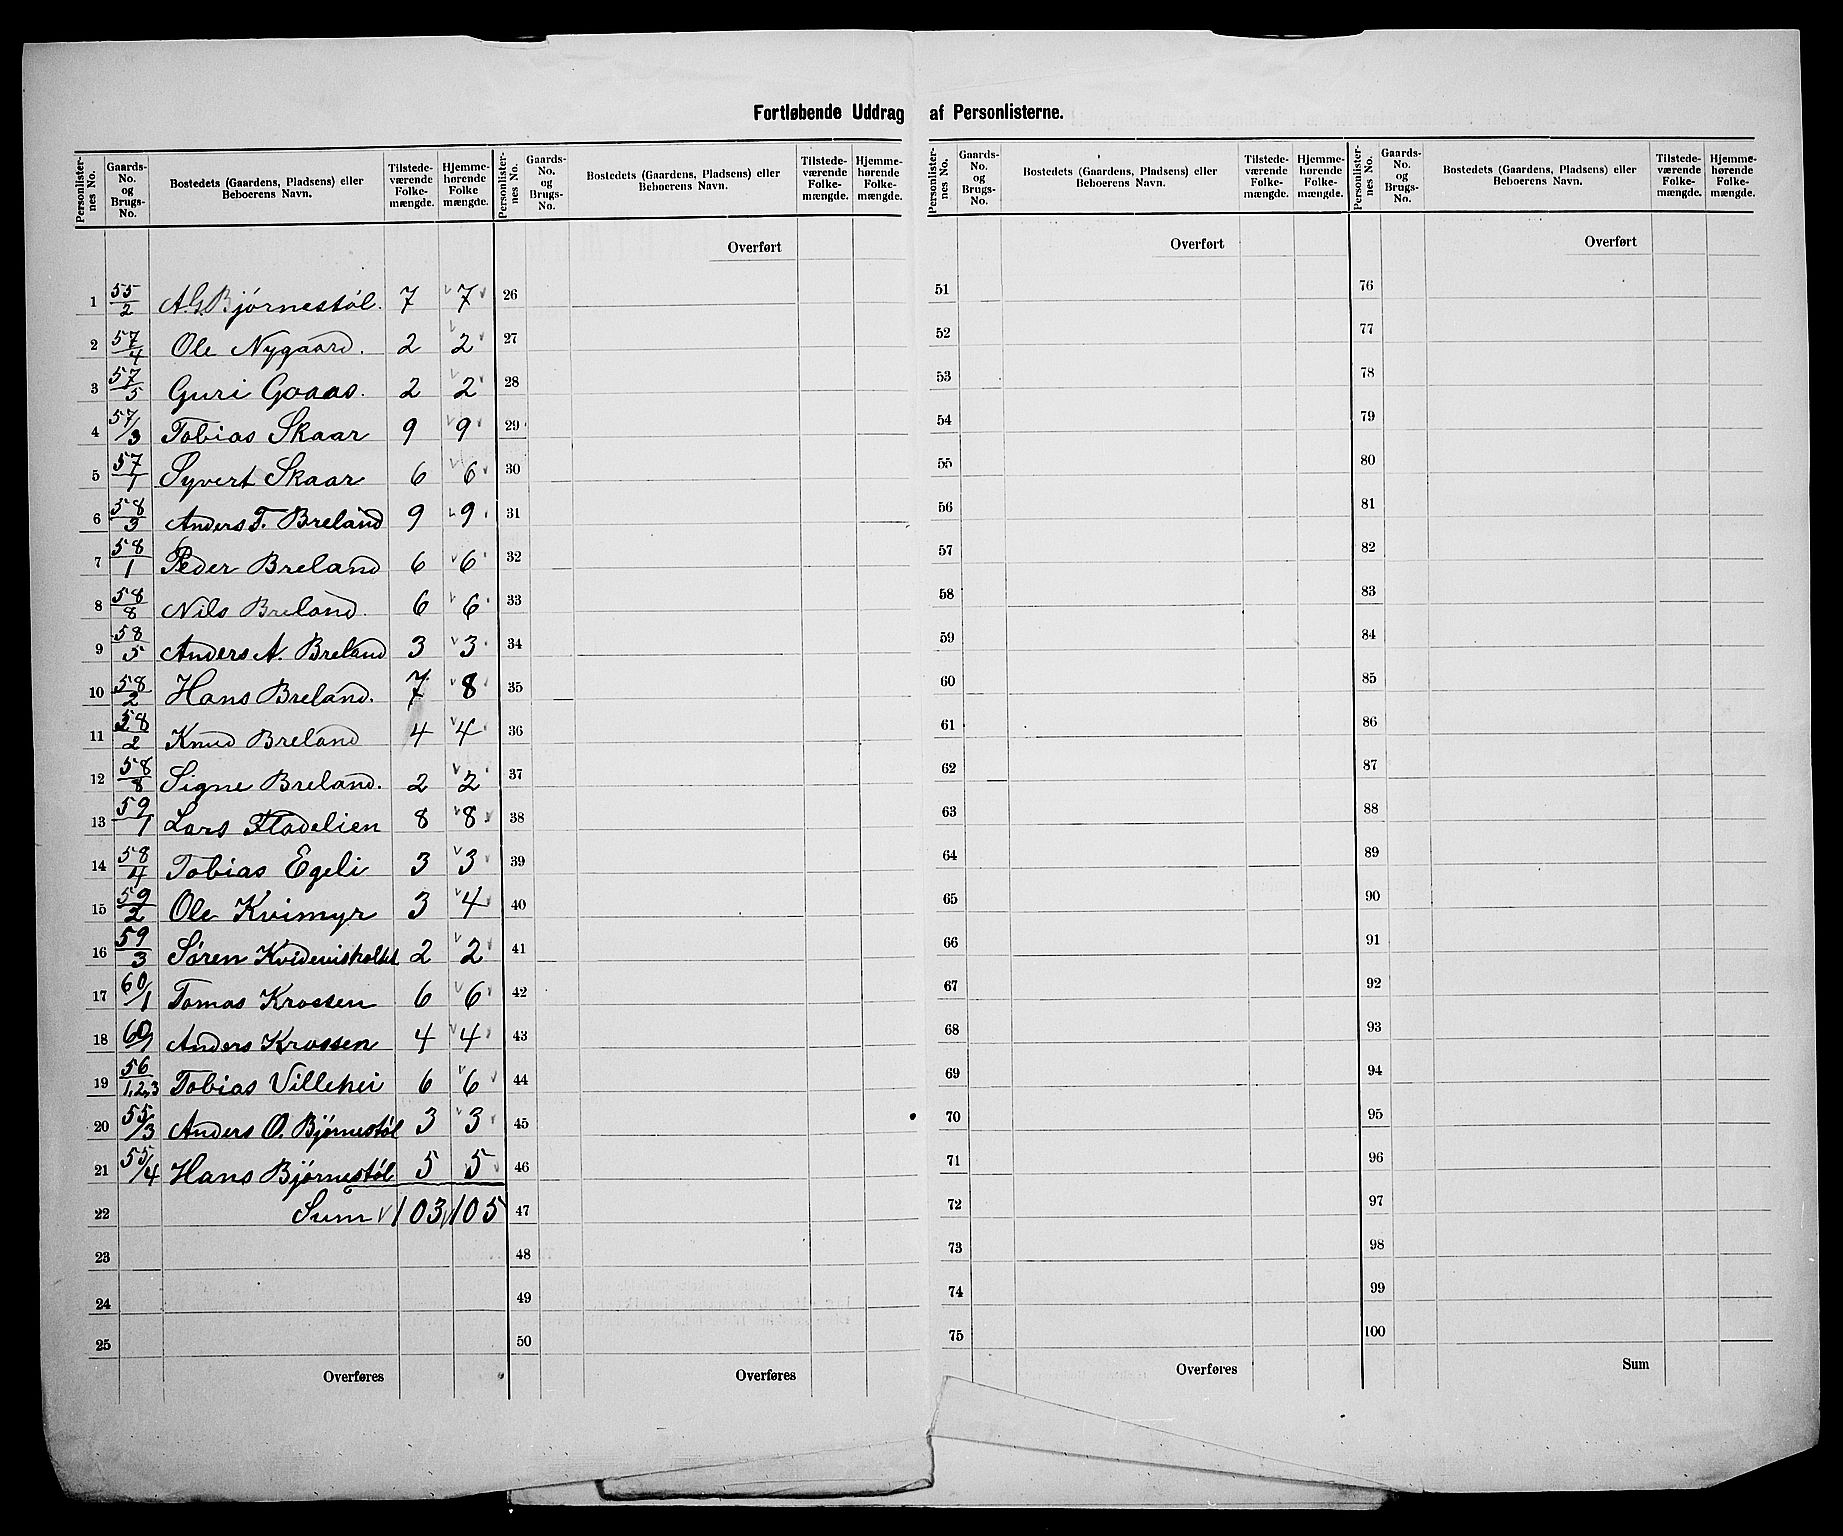 Fortløbende Uddrag af Personlisterne.
Personlisternes No. | Gaards-No. og Brugs-No. | Bostedets (Gaardens, Pladsens) eller Beboerens Navn. | Tilstedeværende Folkemængde. | Hjemmehørende Folke mængde. | Personlisternes No. | Gaards-No. og Brugs-No. | Bostedets (Gaardens, Pladsens) eller Beboerens Navn. | Tilstedeværende Folkemængde. | Hjemmehørende Folkemængde. | Personlisternes No. | Gaards-No. og Brugs-No. | Bostedets (Gaardens, Pladsens) eller Beboerens Navn. | Tilstedeværende Folkemængde. | Hjemmehørende Folkemængde. | Personlisternes No. | Gaards-No. og Brugs-No. | Bostedets (Gaardens, Pladsens) eller Beboerens Navn. | Tilstedeværende Folkemængde. | Hjemmehørende Folkemængde.
Overført Overført Overført
1 55/2 A.G. Bjørnestøl. 7 7 26 51 76
2 57/4 Ole Nygaard. 2 2 27 52 77
3 57/5 Guri Goaas. 2 2 28 53 78
4 57/3 Tobias Skaar 9 9 29 54 79
5 57/1 Syvert Skaar 6 6 30 55 80
6 58/3 Anders T. Breland 9 9 31 56 81
7 58/1 Peder Breland 6 6 32 57 82
8 58/8 Nils Breland. 6 6 33 58 83
9 58/5 Anders A. Breland 3 3 34 59 84
10 58/2 Hans Breland. 7 8 35 60 85
11 58/2 Knud Breland 4 4 36 61 86
12 58/8 Signe Breland. 2 2 37 62 87
13 59/1 Lars Fladelien 8 8 38 63 88
14 58/4 Tobias Egeli 3 3 39 64 89
15 59/2 Ole Kvimyr 3 4 40 65 90
16 59/3 Søren 2 2 41 66 91
17 60/1 Tomas Krossen 6 6 42 67 92
18 60/1 Anders Krossen 4 4 43 68 93
19 56/1,2,3 Tobias Villehei 6 6 44 69 94
20 55/3 Anders O. Bjørnestøl 3 3 45 70 95
21 55/4 Hans Bjørnestøl 5 5 46 71 96
22 Sum 103 105 47 72 97
23 48 73 98
24 49 74 99
25 50 75 100
Overføres Overføres Overføres Sum